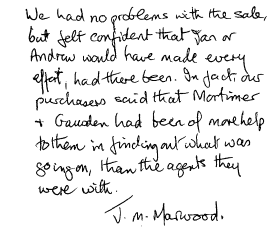 We had no problems with the sale,
but felt confident that Jan or
Andrew would have made every
effort, had there been. In fact our
purchasers said that Mortimer
+ Gausden had been of more help
to them in finding out what was
going on, than the agents they
were with.
J. M. Marwood.